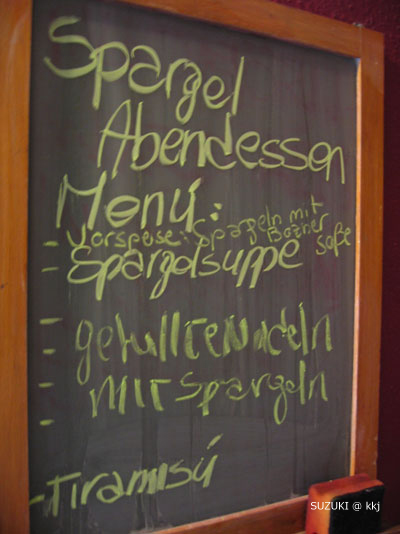 Spargel
Abendessen
Menú:
- Vorspeise: Spargeln mit
Bozner
- Spargelsuppe soße
-
- gefüllte Nudeln
- mit Spargeln
-
- Tiramisú
SUZUKI @ kkj